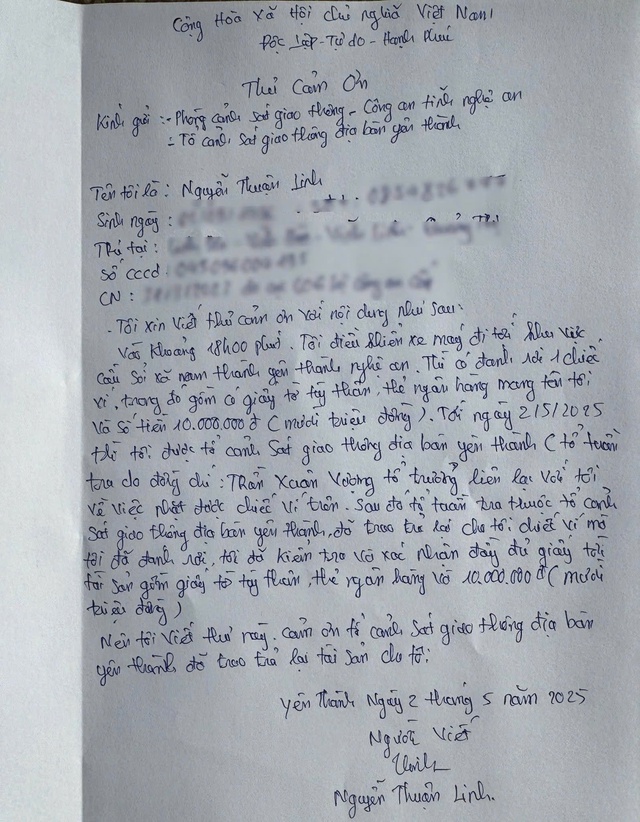 Cộng Hòa Xã Hội chủ nghĩa Việt Nam
Độc lập - Tự do - Hạnh Phúc
Thư Cảm Ơn
Kính gửi : - Phòng cảnh sát giao thông - Công an tỉnh nghệ an
- Tổ cảnh sát giao thông địa bàn yên thành
Tên tôi là : Nguyễn Thuận Linh
Sinh ngày :
Trú tại :
Số CCCD :
CN :
- Tôi xin viết thư cảm ơn với nội dung như sau:
Vào khoảng 18h00 phút. Tôi điều khiển xe máy đi tới khu vực
cầu sỏi xã nam thành yên thành nghệ an. Thì có đánh rơi 1 chiếc
ví, trong đó gồm có giấy tờ tùy thân, thẻ ngân hàng mang tên tôi
và số tiền 10.000.000 đ (mười triệu đồng). Tới ngày 2/5/2025
thì tôi được tổ cảnh sát giao thông địa bàn yên thành (tổ tuần
tra do đồng chí : Trần Xuân Vượng tổ trưởng liên lạc với tôi
về việc nhặt được chiếc ví trên. Sau đó tổ tuần tra thuộc tổ cảnh
sát giao thông địa bàn yên thành, đã trao trả lại cho tôi chiếc ví mà
tôi đã đánh rơi, tôi đã kiểm tra và xác nhận đầy đủ giấy tờ
tài sản gồm giấy tờ tùy thân, thẻ ngân hàng và 10.000.000 đ (mười
triệu đồng)
Nên tôi viết thư này. cảm ơn tổ cảnh sát giao thông địa bàn
yên thành đã trao trả lại tài sản cho tôi
Yên Thành Ngày 2 tháng 5 năm 2025
Người Viết
Linh
Nguyễn Thuận Linh.